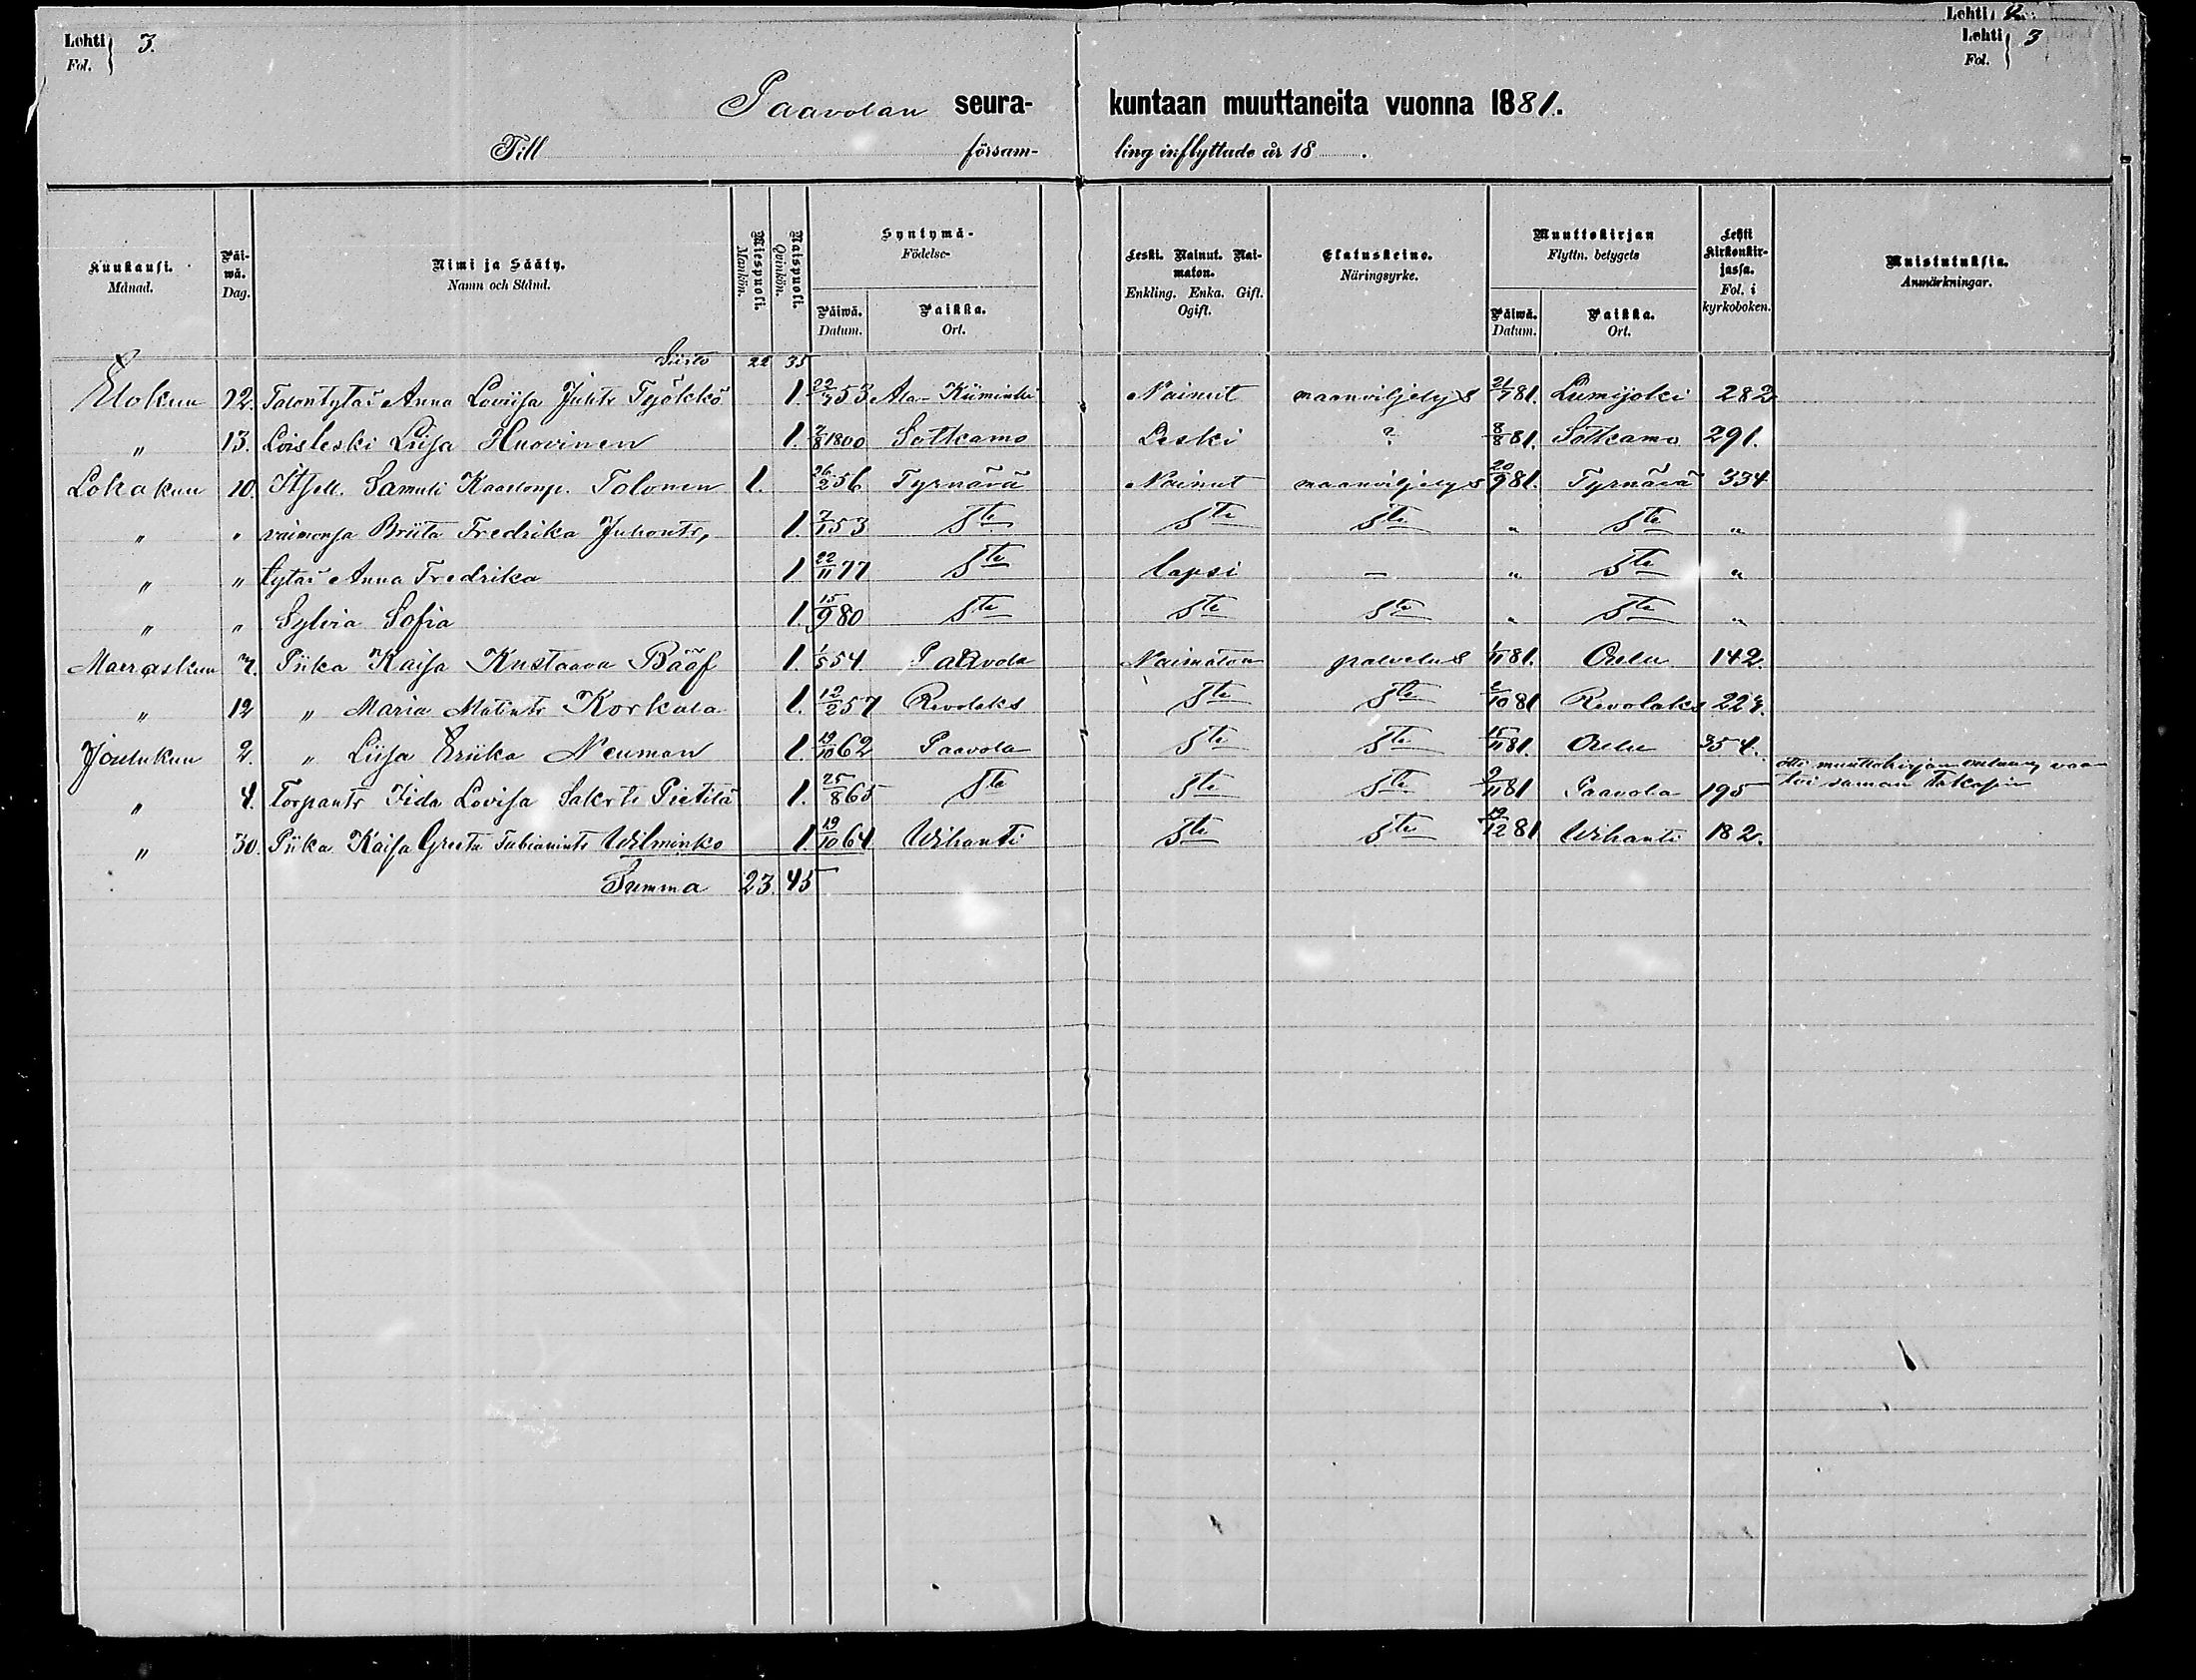 Lehti 2.
Lehti Fol. 3.
Lehti Fol. 3
Paavolan seurakuntaan muuttaneita vuonna 1881.
Till församling inflyttade år 18 .
Kuukausi. Månad. | Päiwä. Dag. | Nimi ja Sääty. Namn och Stånd. | Miespuoli. Mankön. | Naispuoli. Qvinkön. | Syntymä- Födelse- Päiwä. Datum. | Paikka. Ort. | Leski. Nainut. Naimaton. Enkling. Enka. Gift. Ogift. | Elatuskeino. Näringsyrke. | Muuttokirjan Flyttn. betygets Päiwä. Datum. | Paikka. Ort. | Lehti Kirkonkirjassa. Fol. i kyrkoboken. | Muistutuksia. Anmärkningar.
Siirto 22 35
Elokuu 12. Talontytär Anna Loviisa Juhtr Työkkö 1. 22/7 53 Ala-Kiiminki Nainut maanviljelys 21/7 81. Lumijoki 282
" 13. Loisleski Liisa Huovinen 1. 7/8 1800 Sotkamo Leski ? 8/8 81. Sotkamo 291.
Lokakuu 10. Itsell. Samuli Kaarlonp. Tolonen 1. 26/2 56 Tyrnävä Nainut maanviljelys 20/9 81. Tyrnävä 334
" " vaimonsa Briita Fredrika Juhontr, 1. 7/1 53 Ste Ste Ste " Ste "
" " tytär Anna Fredrika 1 22/11 77 Ste lapsi — " Ste "
" " Sylvia Sofia 1. 15/9 80 Ste Ste Ste " Ste "
Marraskuu 7. Piika Kaisa Kustaava Bääf 1. 1/5 54 Paavola Naimaton palvelus 1/11 81. Oulu 142.
" 12 " Maria Matintr Korkala 1. 12/2 57 Revolaks Ste Ste 2/10 81 Revolaks 227.
Joulukuu 2. " Liisa Eriika Neuman 1. 19/10 62 Paavola Ste Ste 15/11 81. Oulu 354.
" 4. Torpantr Iida Lovisa Sakrtr Pietilä 1. 25/8 65 Ste Ste Ste 9/11 81 Paavola 195 otti muuttokirjan
toi saman takasin
" 30. Piika Kaisa Greeta Tabiamintr Wilminko 1. 19/10 64 Wihanti Ste Ste 19/12 81 Wihanti 182.
Summa 23. 45